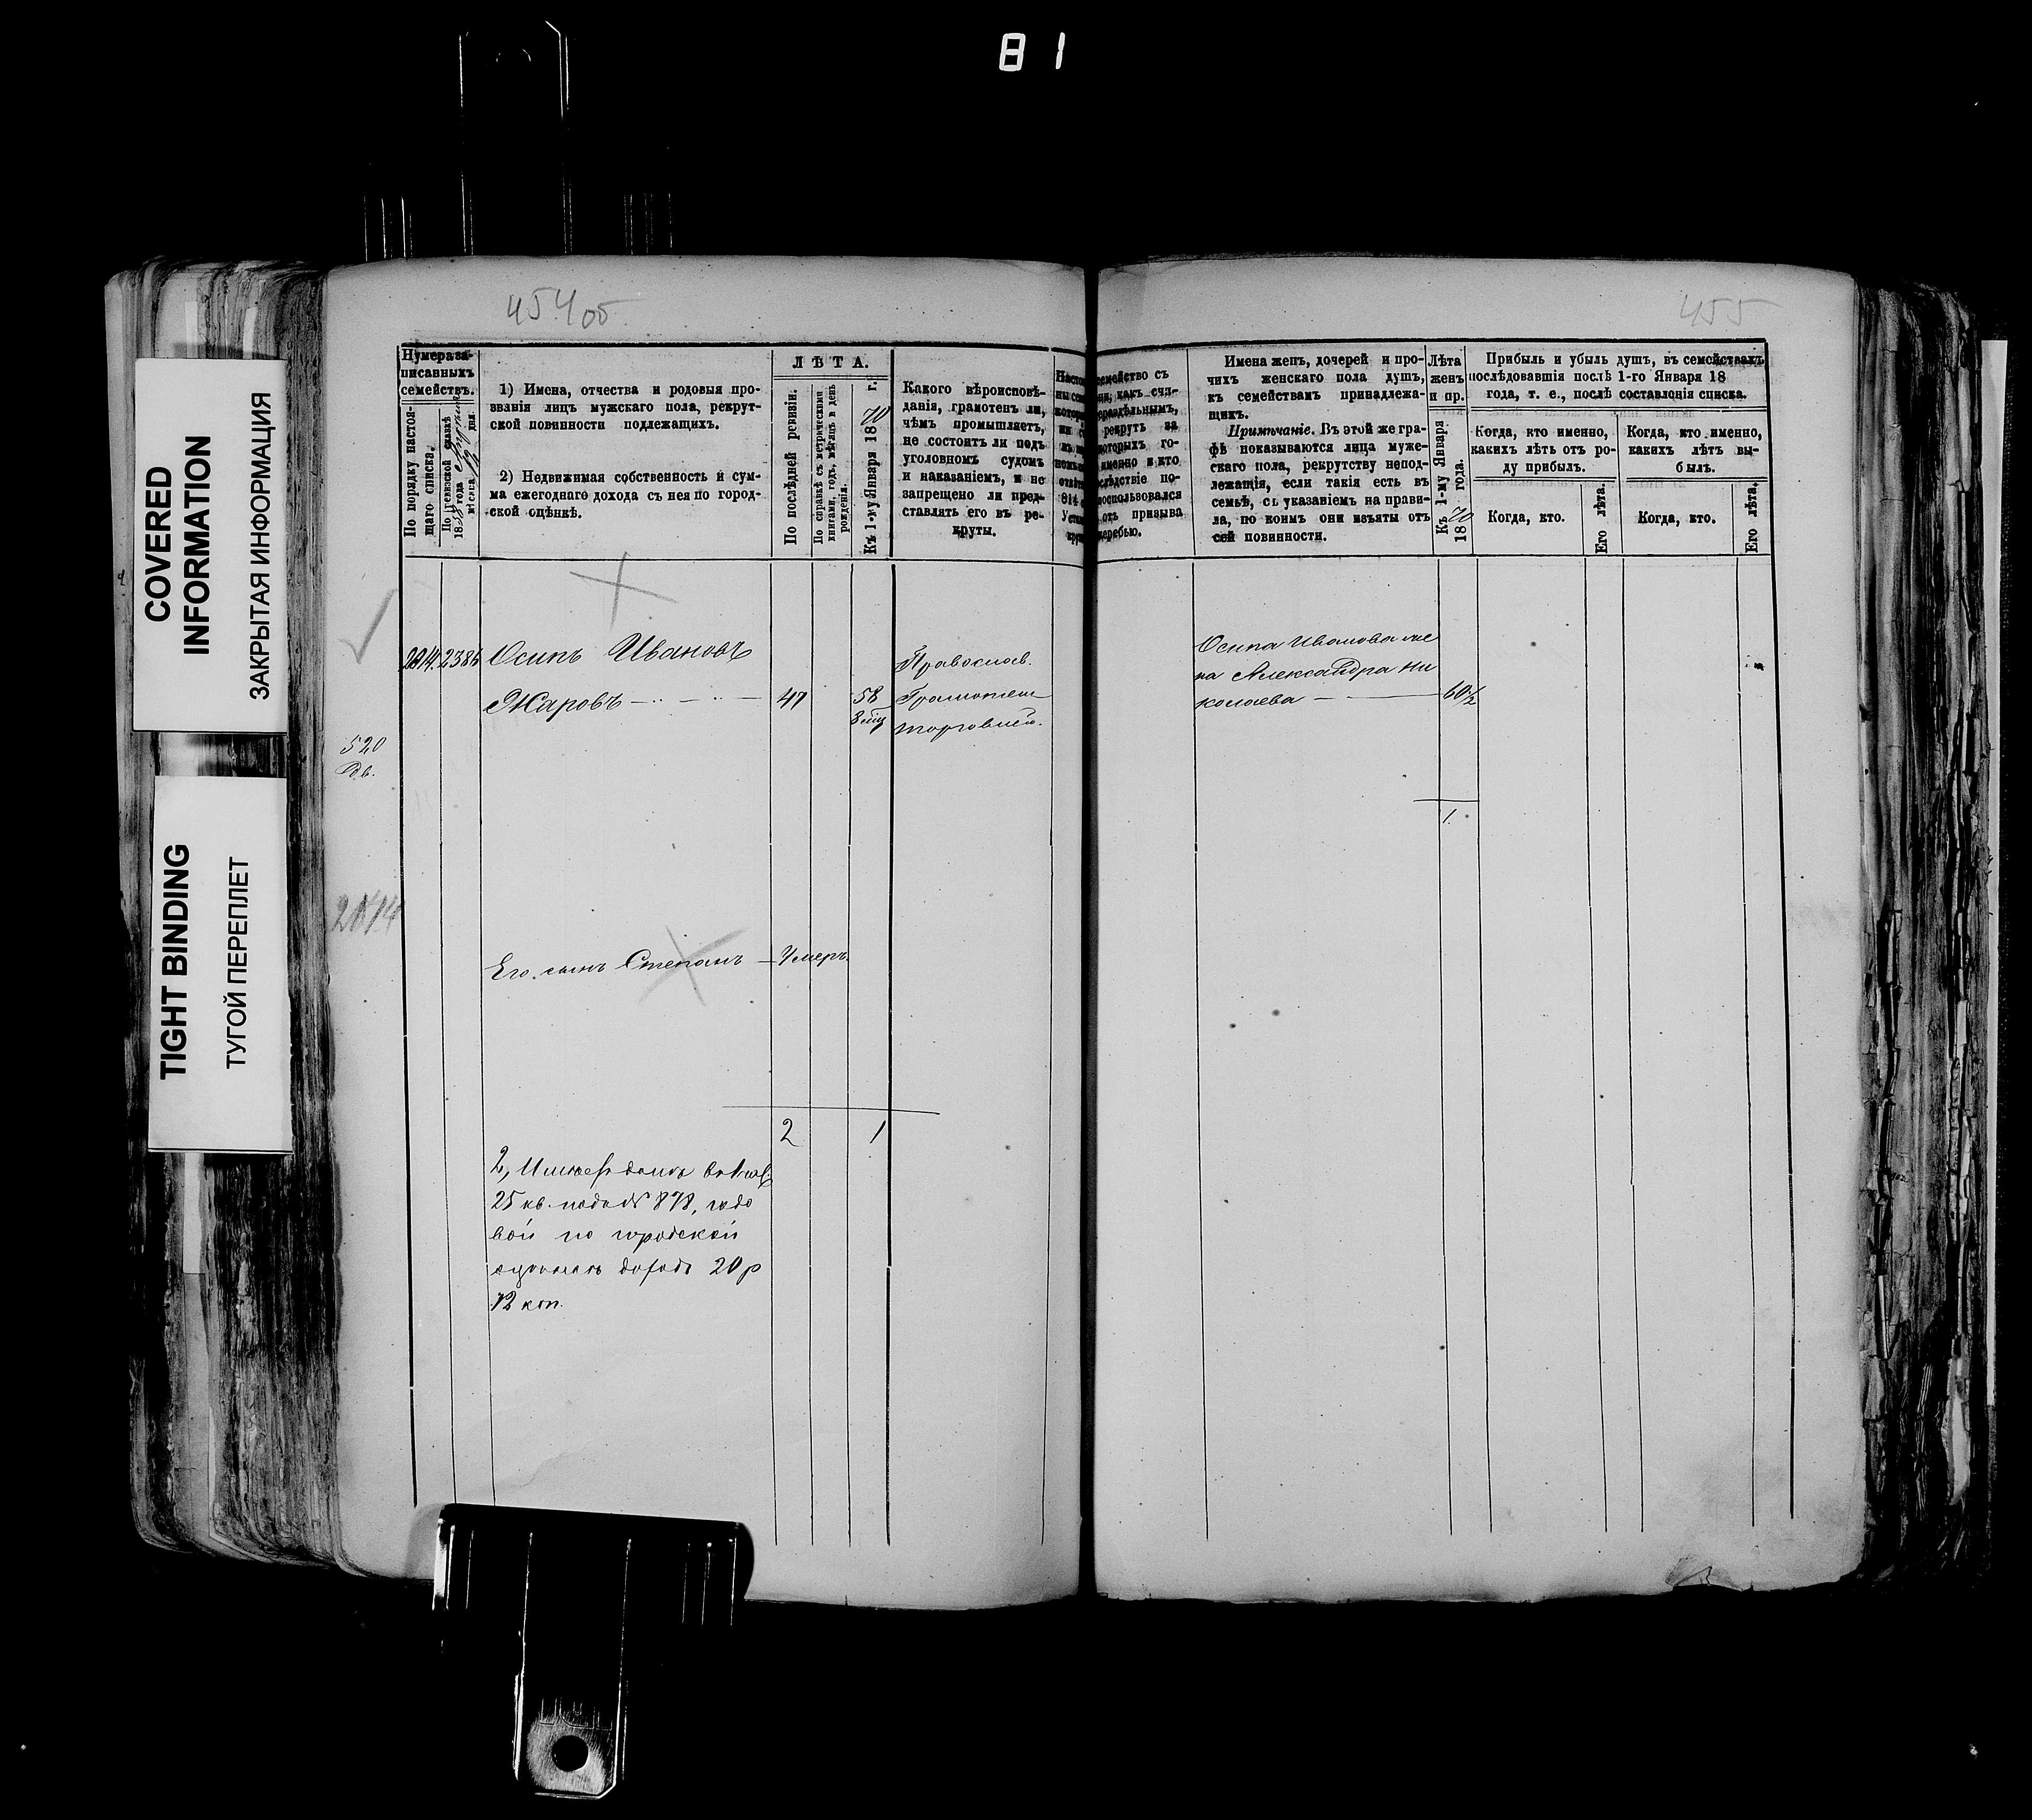 81
COVERED
INFORMATION
ЗАКРЫТАЯ ИНФОРМАЦИЯ
TIGHT BINDING
ТУГОЙ ПЕРЕПЛЕТ
454 об.
Нумера за-
писанныхъ
семействъ.
По порядку настоя-
щаго списка.
1) Имена, отчества и родовыя про-
званія лицъ мужскаго пола, рекрут-
ской повинности подлежащихъ.
2) Недвижимая собственность и сум-
ма ежегоднаго дохода съ нея по город-
ской оцѣнкѣ.
ЛѢТА.
По послѣдней ревизіи.
По справкѣ съ метрическими
книгами, годъ, мѣсяцъ и день
рожденія.
Къ 1-му Января 1870 г.
Какого вѣроисповѣ-
данія, грамотенъ ли,
чѣмъ промышляетъ,
не состоитъ ли подъ
уголовномъ судомъ
и наказаніемъ, и не
запрещено ли пред-
ставлять его въ ре-
круты.
2386
Осипъ Ивановъ
Жаровъ
47
58
Православ.
Грамотен
торговлей.
520
Его сынъ Степанъ
Умеръ
2
1
2, Имѣетъ домъ
25 кв. подъ № 878, годо
вой по городской
оцѣнкѣ доходъ 20 р
72 коп.
455
семейство съ
рекрутъ за
которыхъ го-
именно и кто
отъ призыва
жеребью.
Имена женъ, дочерей и про-
чихъ женскаго пола душъ,
къ семействамъ принадлежа-
щихъ.
Примѣчаніе. Въ этой же гра-
фѣ показываются лица муже-
скаго пола, рекрутству непод-
лежащія, если такія есть въ
семьѣ, съ указаніемъ на прави-
ла, по коимъ они изъяты отъ
сей повинности.
Лѣта
женъ
и пр.
Къ 1-му Января
1870 года.
Прибыль и убыль душъ, въ семействахъ
послѣдовавшія послѣ 1-го Января 18
года, т. е., послѣ составленія списка.
Когда, кто именно,
какихъ лѣтъ отъ ро-
ду прибылъ.
Когда, кто именно,
какихъ лѣтъ вы-
былъ.
Когда, кто.
Его лѣта.
Когда, кто.
Его лѣта.
Осипа Иванова же
на Александра Ни
колаева
60½
1.